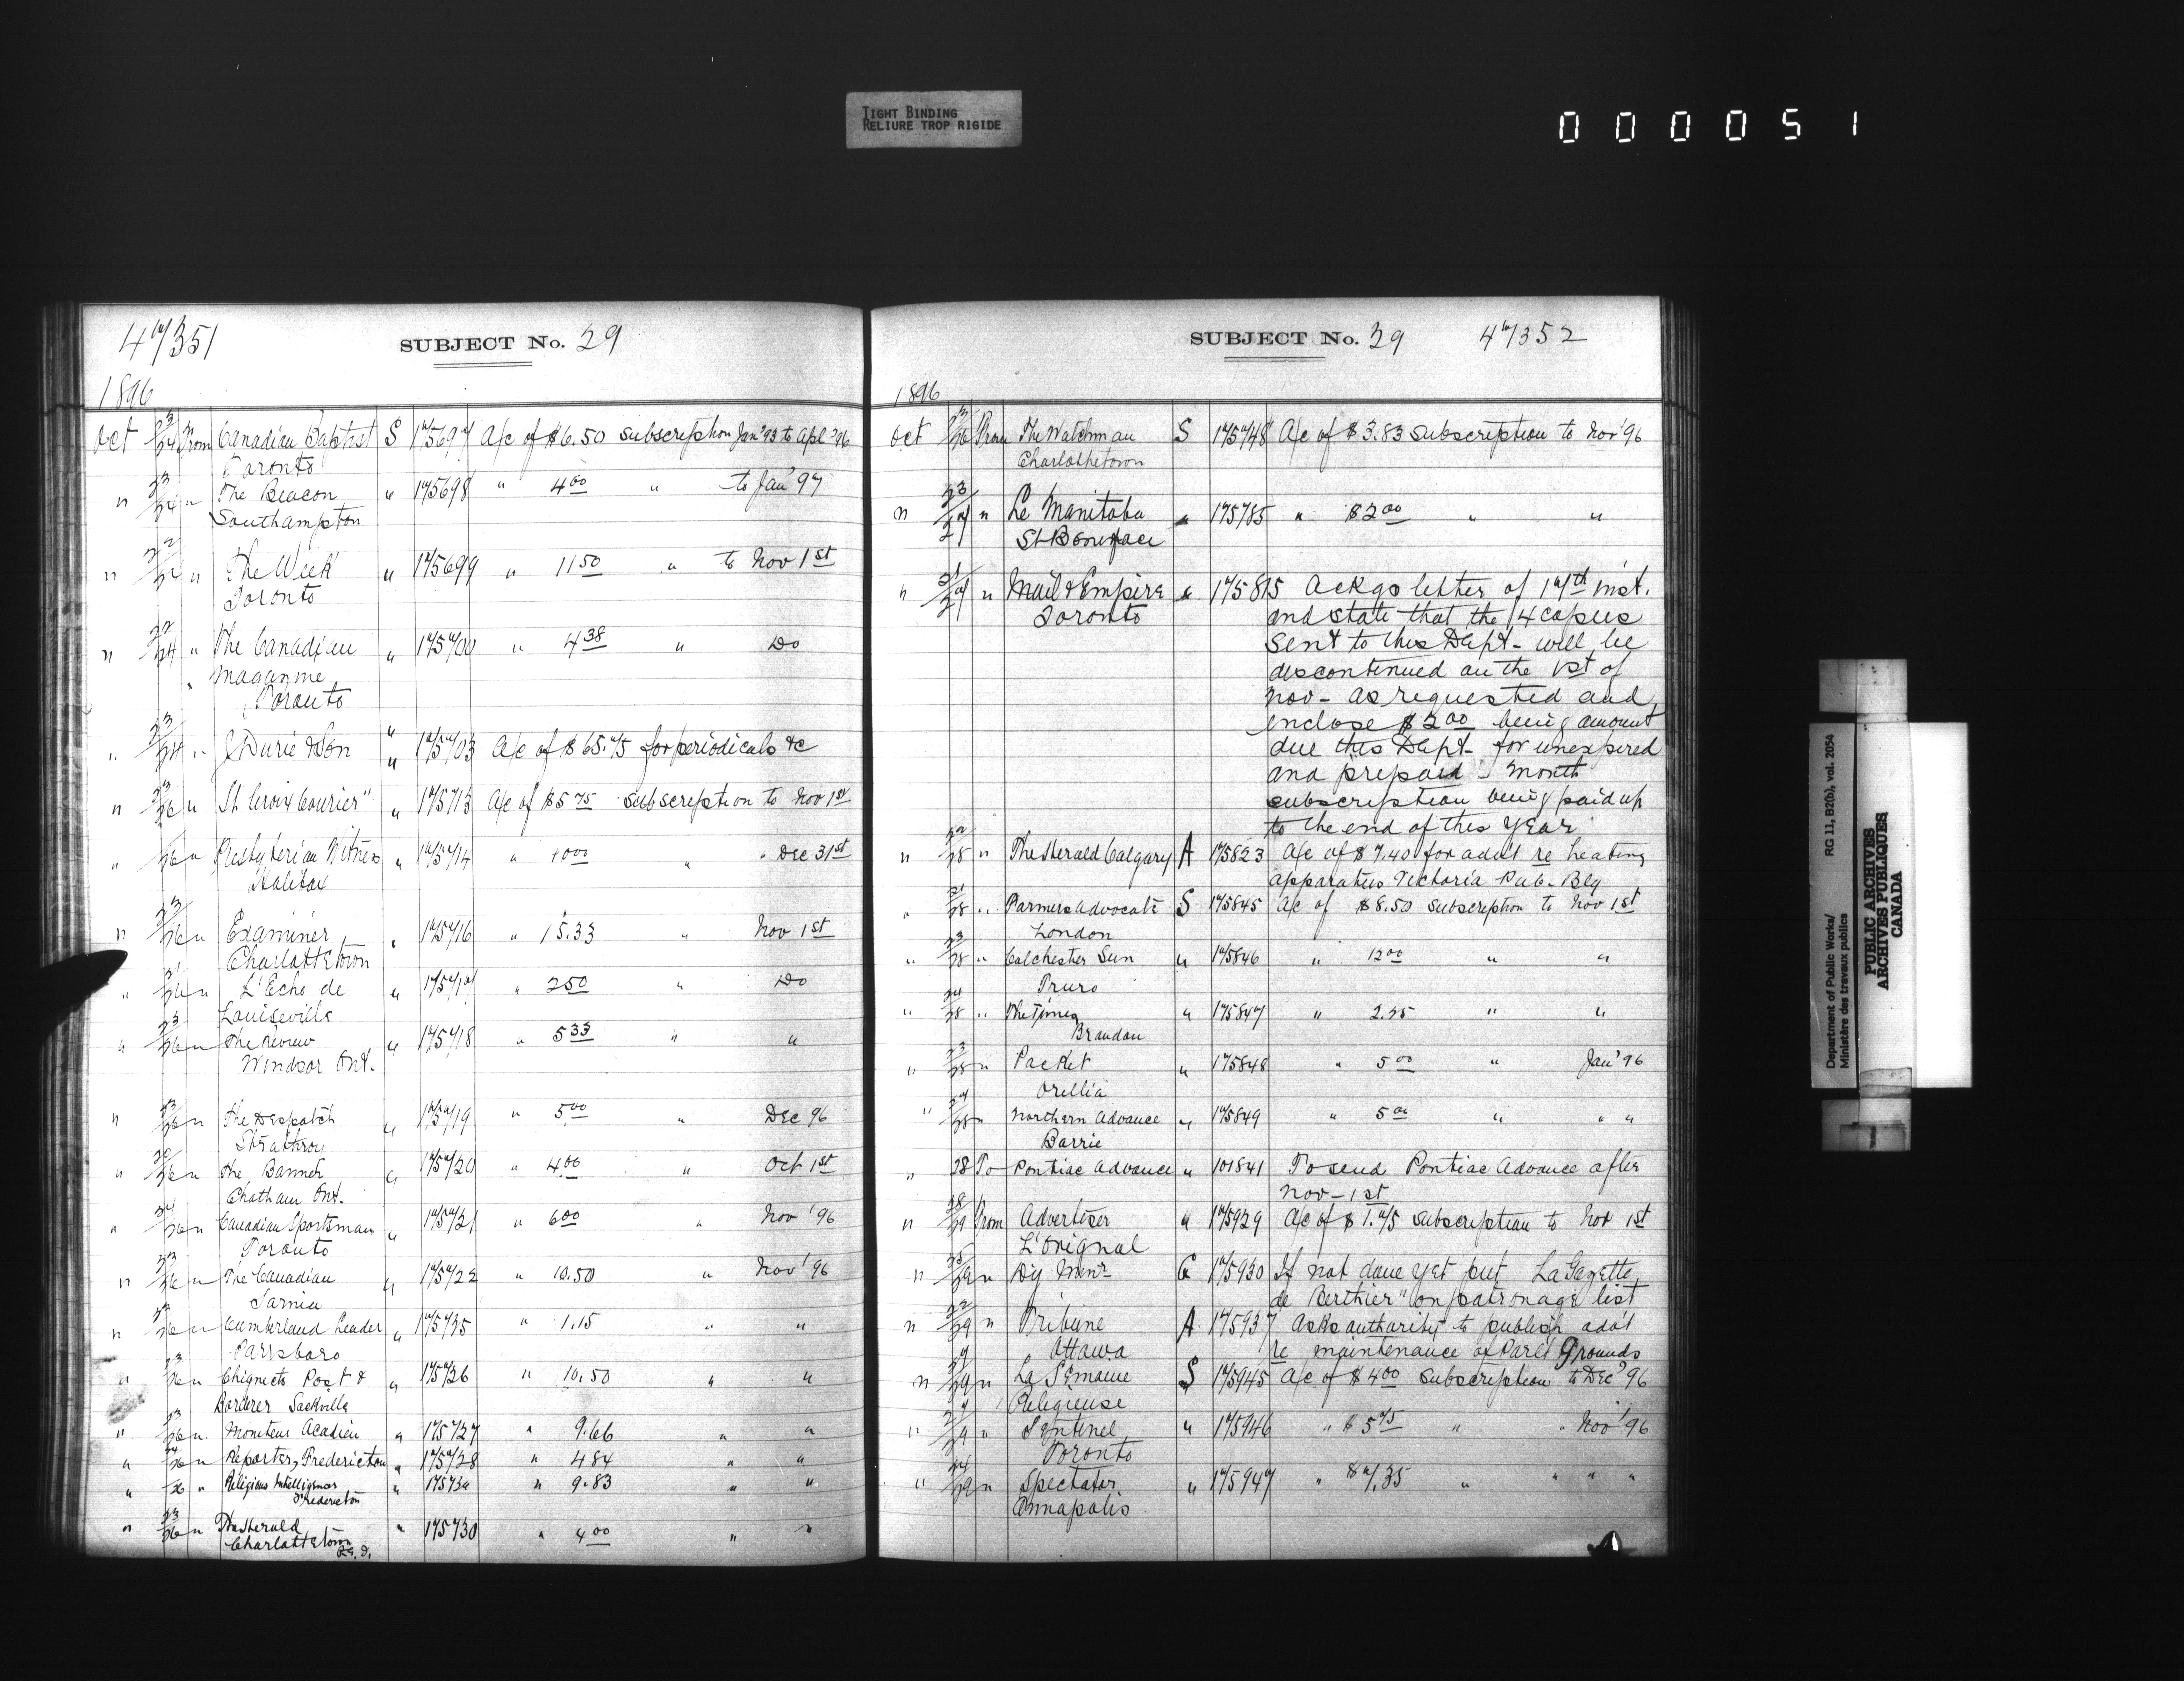 TIGHT BINDING
RELIURE TROP RIGIDE
000051
SUBJECT No. 29
1896
Oct 23/24 From Canadian Baptist S 175697 A/c of $6.50 subscription Jan'93 to Apl'96
Toronto
" 23/24 " The Beacon " 175698 " 4 00 " to Jan' 97
Southampton
" 22/24 " The Week " 175699 " 11 50 " to Nov 1st
Toronto
" 22/24 " The Canadian " 175700 " 4 38 " Do
Magazine
Toronto
" 23/24 " J Durie & Son " 175703 A/c of $65.75 for periodicals &c
" 23/26 " St Croix Courier" " 175713 A/c of $5 75 subscription to Nov 1st
" /26 " Presbyterian Witness " 175714 " 10 00 " " Dec 31st
Halifax
" 23/26 " Examiner " 175716 " 15.33 " Nov 1st
Charlottetown
" 21/26 " L'Echo de " 175717 " 2 50 " Do
Louiseville
" 23/26 " The Review " 175718 " 5 33 " "
Windsor Ont.
" 23/26 " The Despatch " 175719 " 5 00 " Dec 96
Strathroy
" 20/26 " The Banner " 175720 " 4.00 " Oct 1st
Chatham Ont.
" 24/26 " Canadian Sportsman " 175721 " 6 00 " Nov '96
Toronto
" 23/26 " The Canadian " 175722 " 10.50 " Nov' 96
Sarnia
" 22/26 " Cumberland Leader " 175725 " 1.15 " "
Parrsboro
" 23/26 " Chignecto Post & " 175726 " 10.50 " "
Borderer Sackville
" 23/26 " Moniteur Acadien " 175727 " 9.66 " "
" 24/26 " Reporter, Fredericton " 175728 " 4 84 " "
" /26 " Religious Intelligencer " 17573a " 9.83 " "
Fredericton
" 23/26 " The Herald " 175730 " 4 00 " "
Charlottetown
P.E.I.
SUBJECT No. 29 47352
1896
Oct 23/26 From The Watchman S 175748 A/c of $3.83 subscription to Nov'96
Charlottetown
" 23/27 " Le Manitoba " 175785 " $2 00 " "
St Boniface
" 21/27 " Mail & Empire " 175815 Ackgs letter of 17th inst.
Toronto and state that the 14 copies
sent to this Dept- will be
discontinued on the 1st of
Nov- as requested and
enclose $2 00 being amount
due this Dept- for unexpired
and prepaid - month
subscription being paid up
to the end of this year
" 22/28 " The Herald Calgary A 175823 A/c of $7.40 for advt re heating
apparatus Victoria Pub- Blg
" 21/28 " Farmers Advocate S 175845 A/c of $8.50 subscription to Nov 1st
London
" 23/28 " Colchester Sun " 175846 " 12 00 " "
Truro
" 24/28 " The Times " 175847 " 2.25 " "
Brandon
" 23/28 " Packet " 175848 " 5 00 " Jan' 96
Orillia
" 24/28 " Northern Advance " 175849 " 5 00 " " "
Barrie
" 28 To Pontiac Advance " 101841 To send Pontiac Advance after
Nov- 1st
" 28/29 From Advertiser " 175929 A/c of $1.75 subscription to Nov 1st
L'Orignal
" 25/29 " Dy Minr G 175930 If not done yet put La Gazette
de Berthier" on patronage list
" 22/29 " Tribune A 175937 Asks authority to publish adv't
Ottawa re maintenance of Parlt Grounds
" 27/29 " La Semaine S 175945 A/c of $4 00 subscription to Dec'96
Religieuse
" 27/29 " Sentinel " 175946 " $5 75 " " Nov'96
Toronto
" 24/29 " Spectator " 175947 " $7.35 " " " "
Annapolis
Department of Public Works/
Ministère des travaux publics
RG 11, B2(b), vol. 2054
PUBLIC ARCHIVES
ARCHIVES PUBLIQUES
CANADA